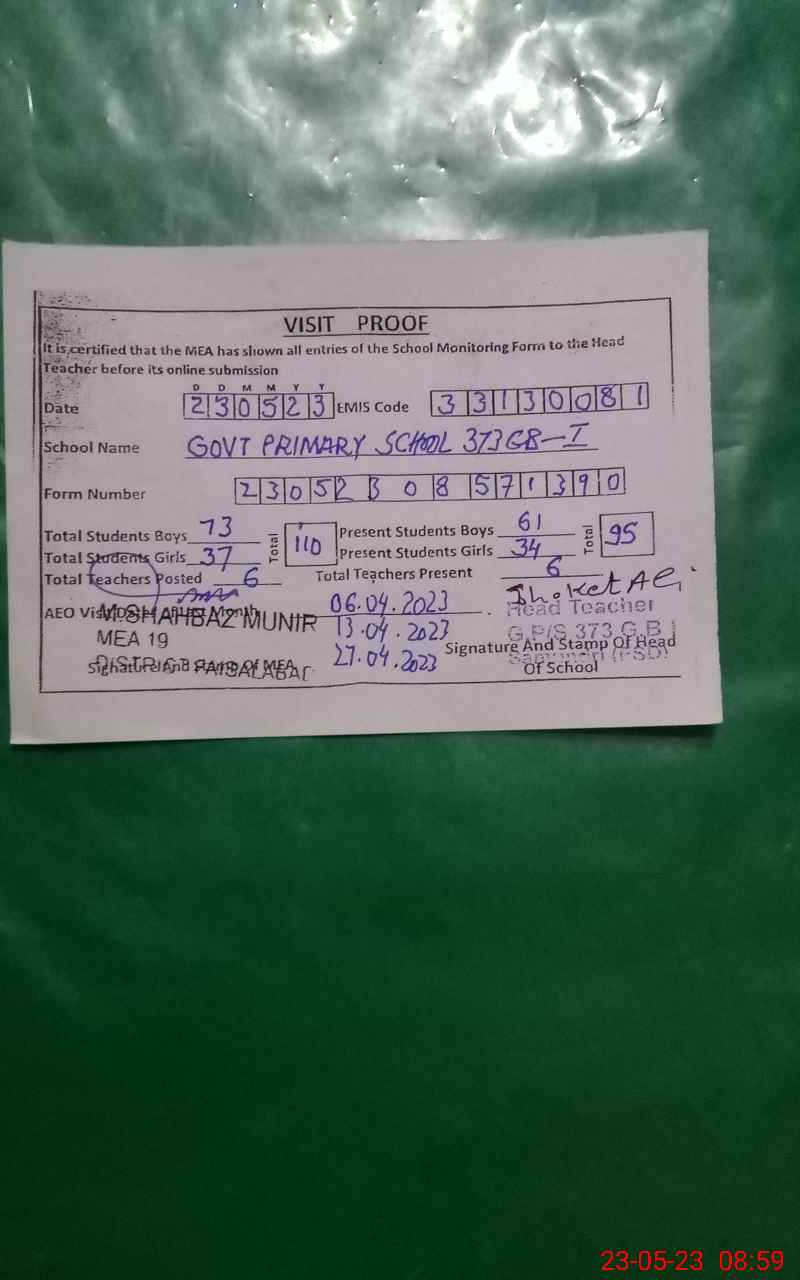 VISIT PROOF
It is certified that the MEA has shown all entries of the School Monitoring Form to the Head
Teacher before its online submission
D D M M Y Y
Date 230523 EMIS Code 33130081
School Name GOVT PRIMARY SCHOOL 373GB-I
Form Number 23052308571390
Total Students Boys 73 Total 110 Present Students Boys 61 Total 95
Total Students Girls 37 Present Students Girls 34
Total Teachers Posted 6 Total Teachers Present 6
AEO Visit 06.04.2023
13.04.2023
27.04.2023
M SHAHBAZ MUNIR
MEA 19
DISTRICT FAISALABAD
Signature And Stamp Of MEA
Shoket Ali
Head Teacher
G.P/S 373 G.B I
Signature And Stamp Of Head
Of School
23-05-23 08:59